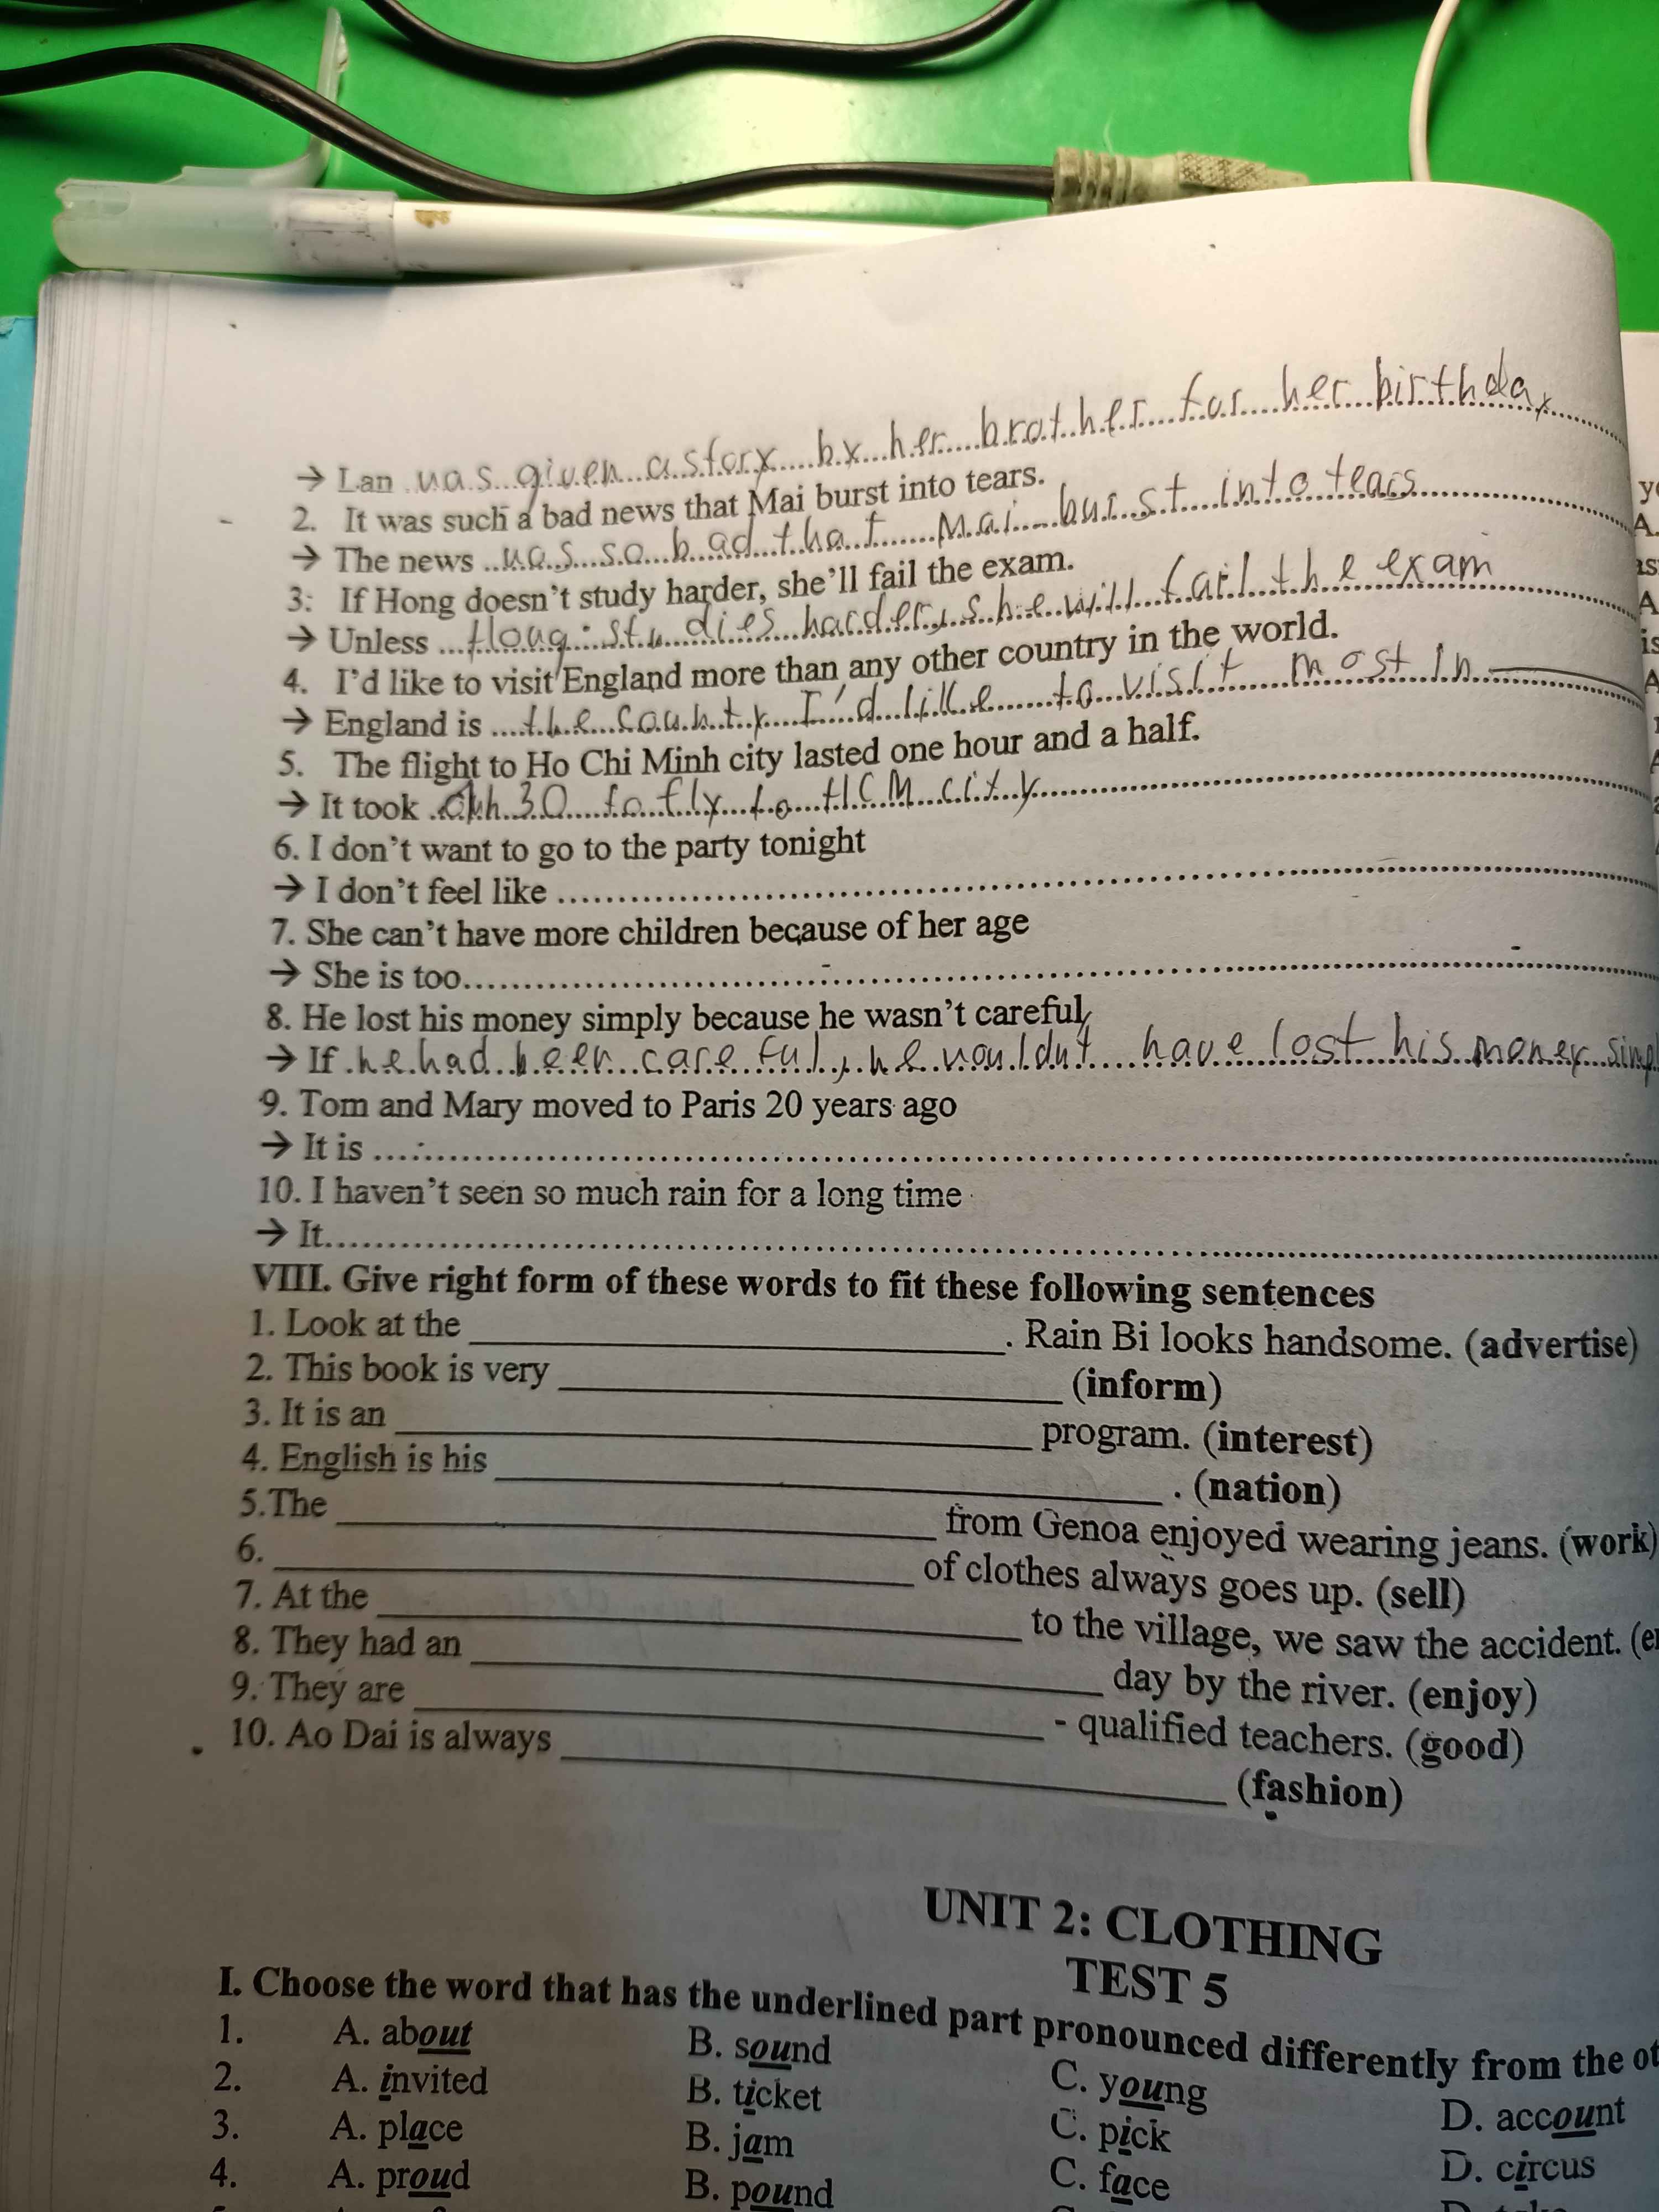 → Lan was given a story by her brother for her birthday
2. It was such a bad news that Mai burst into tears.
→ The news was so bad that Mai burst into tears
3: If Hong doesn't study harder, she'll fail the exam.
→ Unless Hong studies harder, she will fail the exam
4. I'd like to visit England more than any other country in the world.
→ England is the county I'd like to visit most in
5. The flight to Ho Chi Minh city lasted one hour and a half.
→ It took 1h30 to fly to HCM city
6. I don't want to go to the party tonight
→ I don't feel like
7. She can't have more children because of her age
→ She is too
8. He lost his money simply because he wasn't careful
→ If he had been careful, he wouldn't have lost his money
9. Tom and Mary moved to Paris 20 years ago
→ It is
10. I haven't seen so much rain for a long time
→ It
VIII. Give right form of these words to fit these following sentences
1. Look at the ____. Rain Bi looks handsome. (advertise)
2. This book is very ____ (inform)
3. It is an ____ program. (interest)
4. English is his ____. (nation)
5.The ____ from Genoa enjoyed wearing jeans. (work)
6. ____ of clothes always goes up. (sell)
7. At the ____ to the village, we saw the accident.
8. They had an ____ day by the river. (enjoy)
9. They are ____ - qualified teachers. (good)
10. Ao Dai is always ____ (fashion)
UNIT 2: CLOTHING
TEST 5
I. Choose the word that has the underlined part pronounced differently from the
1. A. about B. sound C. young D. account
2. A. invited B. ticket C. pick D. circus
3. A. place B. jam C. face
4. A. proud B. pound